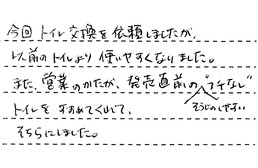 今回トイレ交換を依頼しましたが、
以前のトイレより使いやすくなりました。
また、営業のかたが、発売直前の"フチなし"
そうじのしやすい
トイレをすすめてくれて、
そちらにしました。